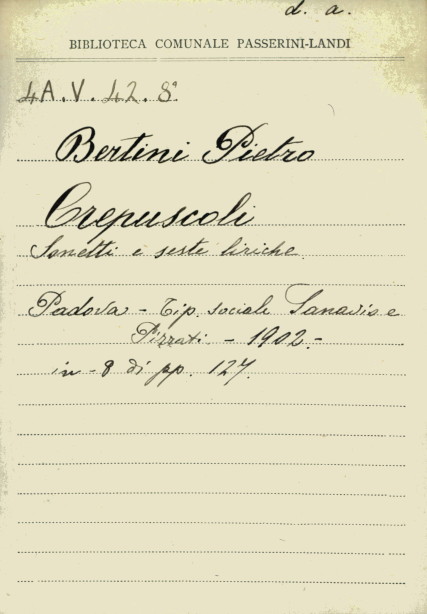 d. a.
BIBLIOTECA COMUNALE PASSERINI-LANDI
4A.V.42.8°
Bertini Pietro
Crepuscoli
Sonetti e seste liriche
Padova - Tip. sociale Sanavio e
Pizzati - 1902 -
in - 8 di pp. 127.